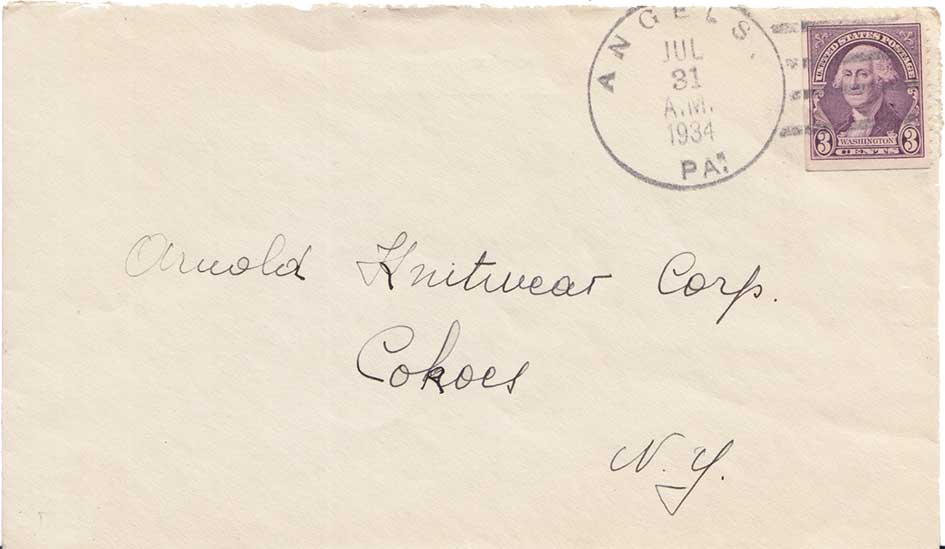 ANGELS.
JUL
31
A.M.
1934
PA.
UNITED STATES POSTAGE
3 WASHINGTON 3
CENTS
Arnold Knitwear Corp.
Cohoes
N.Y.